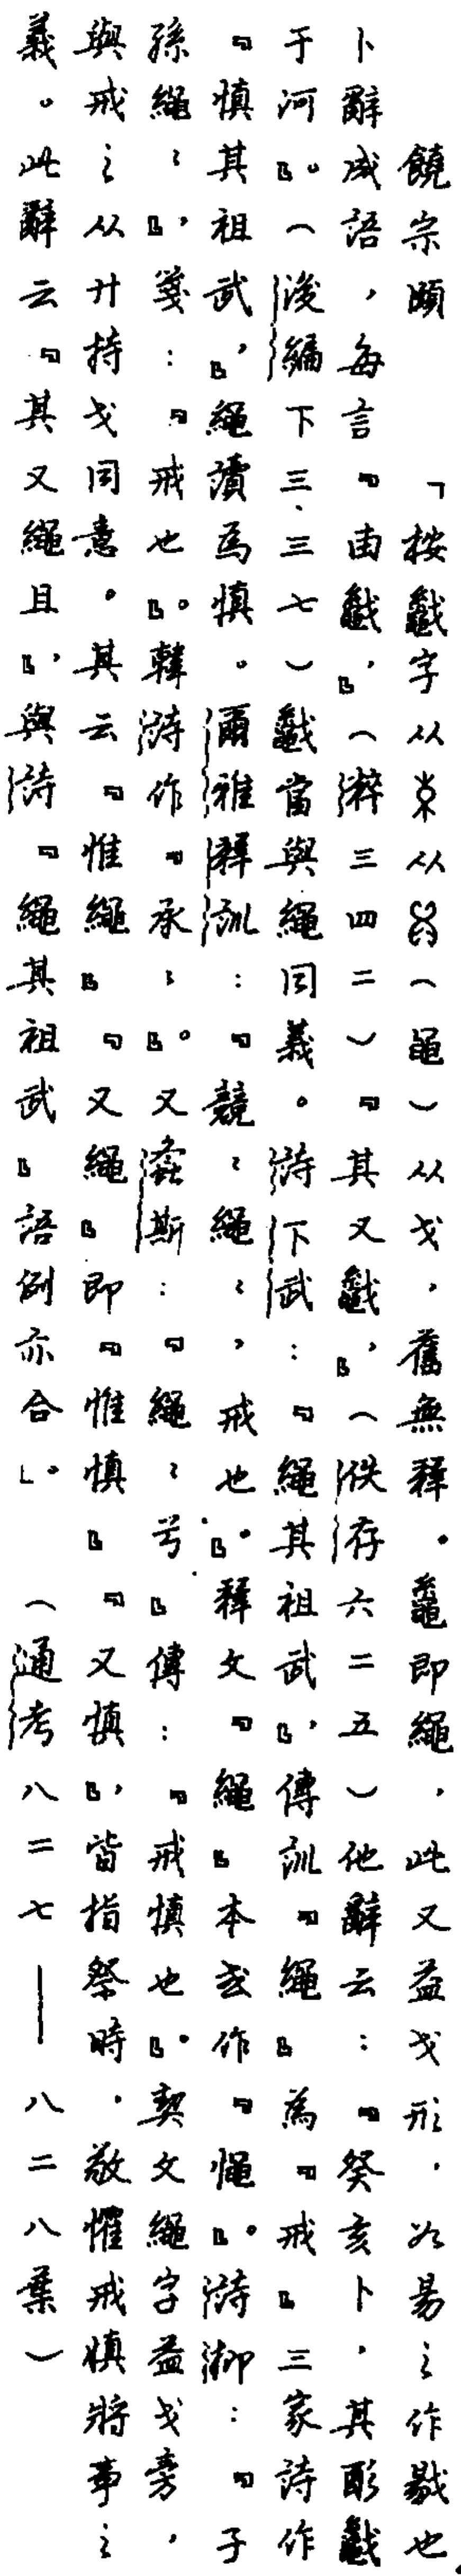 饒宗頤　「按𪚦字从朿从(黽)从戈，舊無釋。鼅即繩，此又益戈形，如易之作剔也，
卜辭成語，每言『由』，(淬三四二)『其又』，(佚存六二五)他辭云：『癸亥卜，其酌
于河』。(後編下三、三七)當與繩同義。詩下武：『繩其祖武』，傳訓『繩』為『戒』三家詩作
『慎其祖武』，繩讀為慎。爾雅釋訓：『兢〻繩〻，戒也』。釋文『繩』本或作『憴』。詩抑：『子
孫繩〻』，箋：『戒也』。韓詩作『承〻』。又螽斯：『繩〻兮』傳：『戒慎也』。契文繩字益戈旁，
與戒之从廾持戈同意。其云『惟繩』『又繩』即『惟慎』『又慎』，皆指祭時，敬懼戒慎將事之
義。此辭云『其又繩且』，與詩『繩其祖武』語例亦合」。(通考八二七——八二八葉)